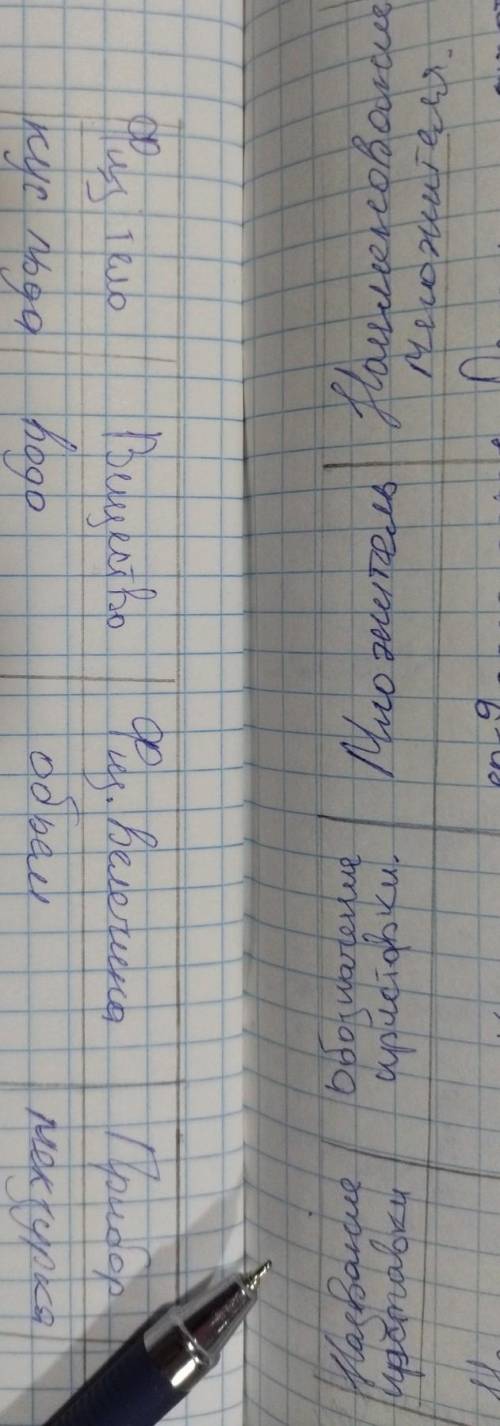 Название
приставки
Обозначение
приставки.
Множитель
Наименование
множителя.
Физ тело
Вещество
Физ. Велечина
Прибор
кус льда
вода
объем
мензурка